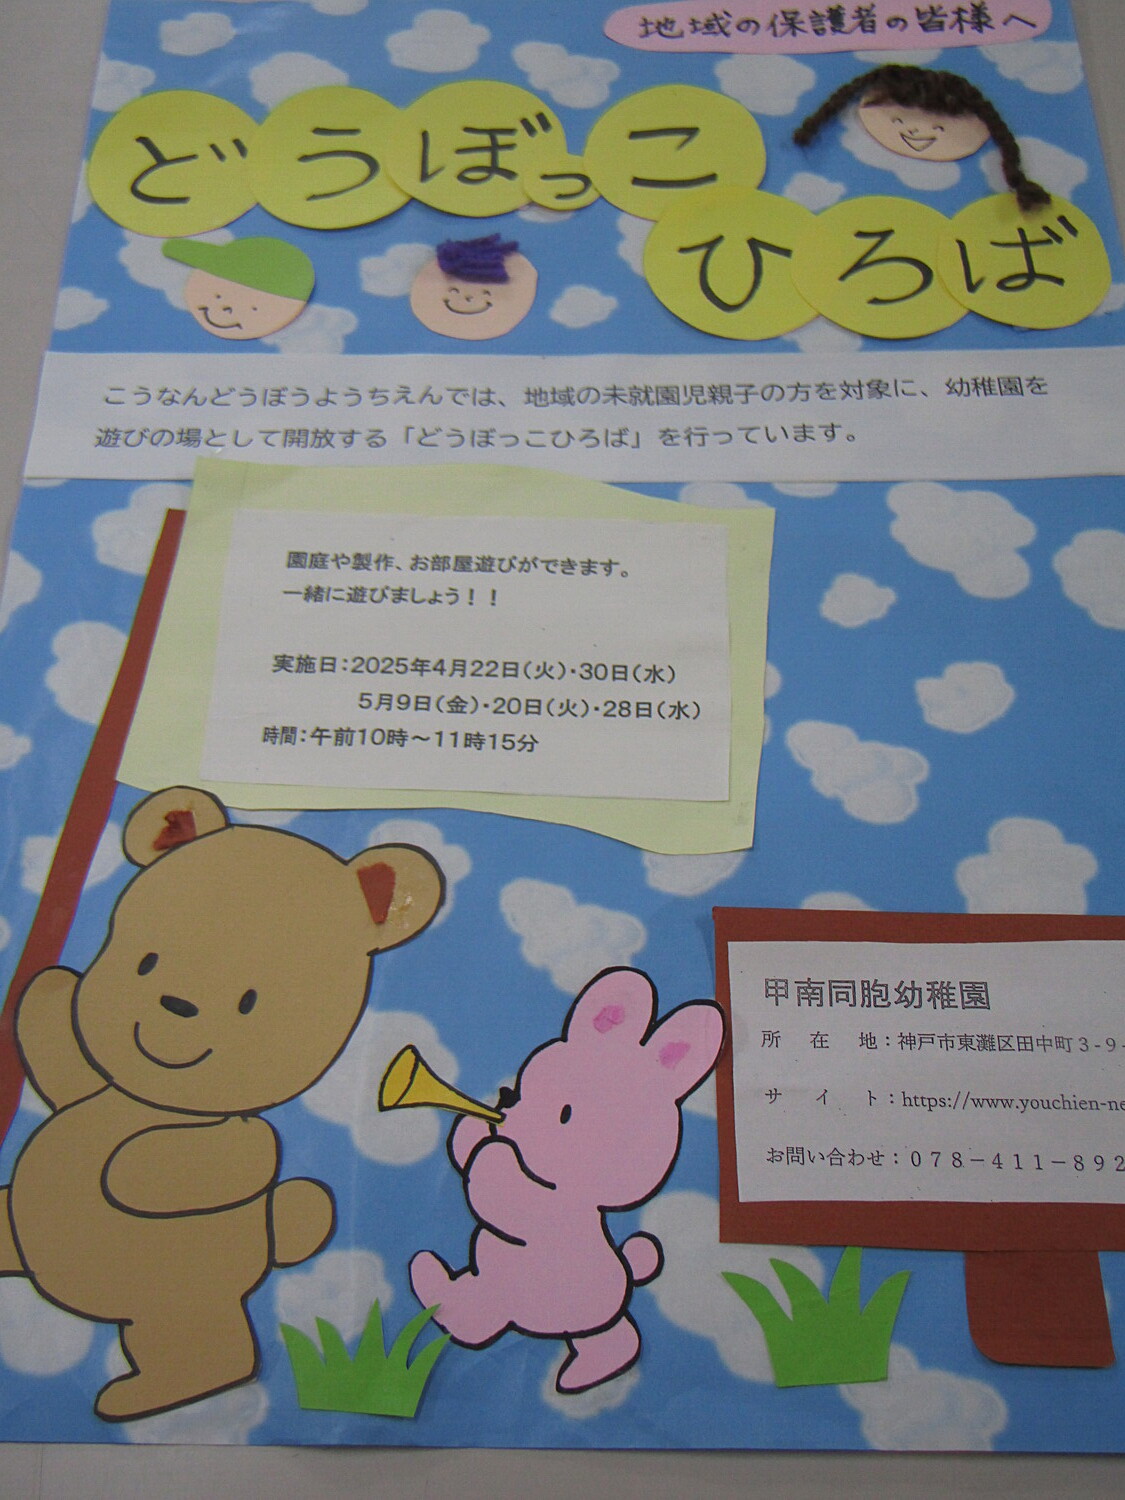 地域の保護者の皆様へ
どうぼっこ
ひろば
こうなんどうぼうようちえんでは、地域の未就園児親子の方を対象に、幼稚園を
遊びの場として開放する「どうぼっこひろば」を行っています。
園庭や製作、お部屋遊びができます。
一緒に遊びましょう！！
実施日：2025年4月22日（火）・30日（水）
5月9日（金）・20日（火）・28日（水）
時間：午前10時～11時15分
甲南同胞幼稚園
所在地：神戸市東灘区田中町３-９-
サイト：https://www.youchien-ne
お問い合わせ：０７８－４１１－８９２